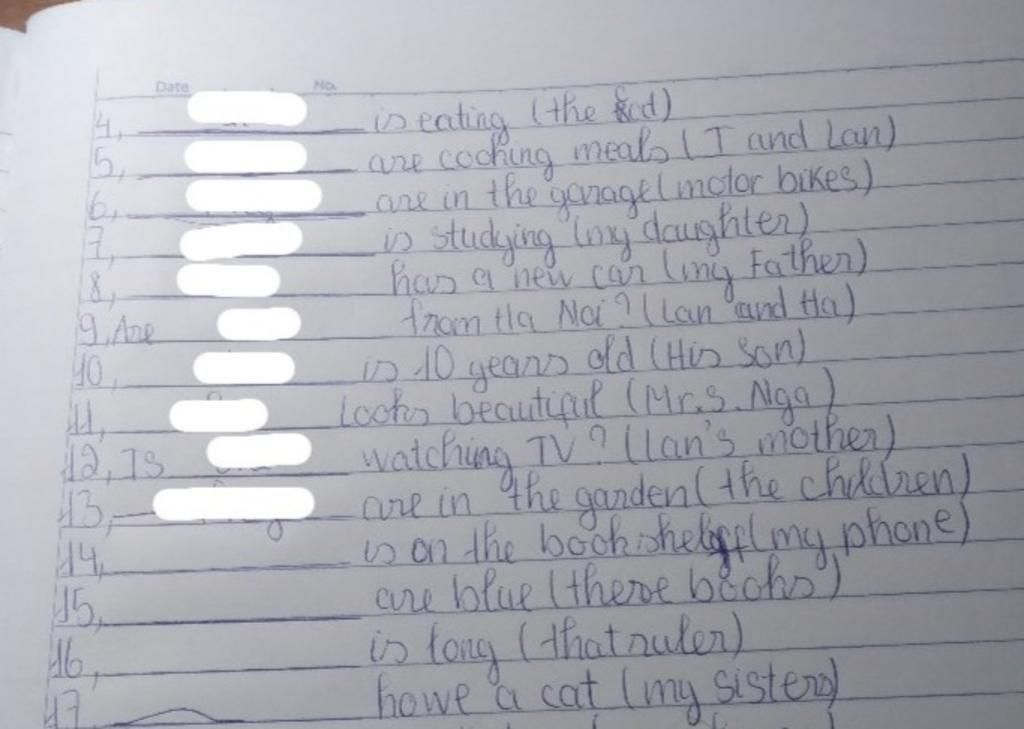 Date No.
4, is eating (the
5, are cooking meals (I and Lan)
6, are in the garage (motor bikes)
7, is studying (my daughter)
8, has a new car (my Father)
9, Are from Ha Noi? (Lan and Ha)
10, is 10 years old (His son)
11, Looks beautiful (Mr.s. Nga)
12, Is watching TV? (Lan's mother)
13, are in the garden (the children)
14, is on the book (my phone)
15, are blue (books)
16, is long (that ruler)
17 a cat (my sisters)